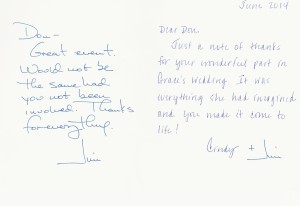 Don-
Great event.
Would not be
the same had
you not been
involved. Thanks
for everything.
Jim
June 2014
Dear Don,
Just a note of thanks
for your wonderful part in
Grace's wedding. It was
everything she had imagined
and you made it come to
life!
Cindy + Jim